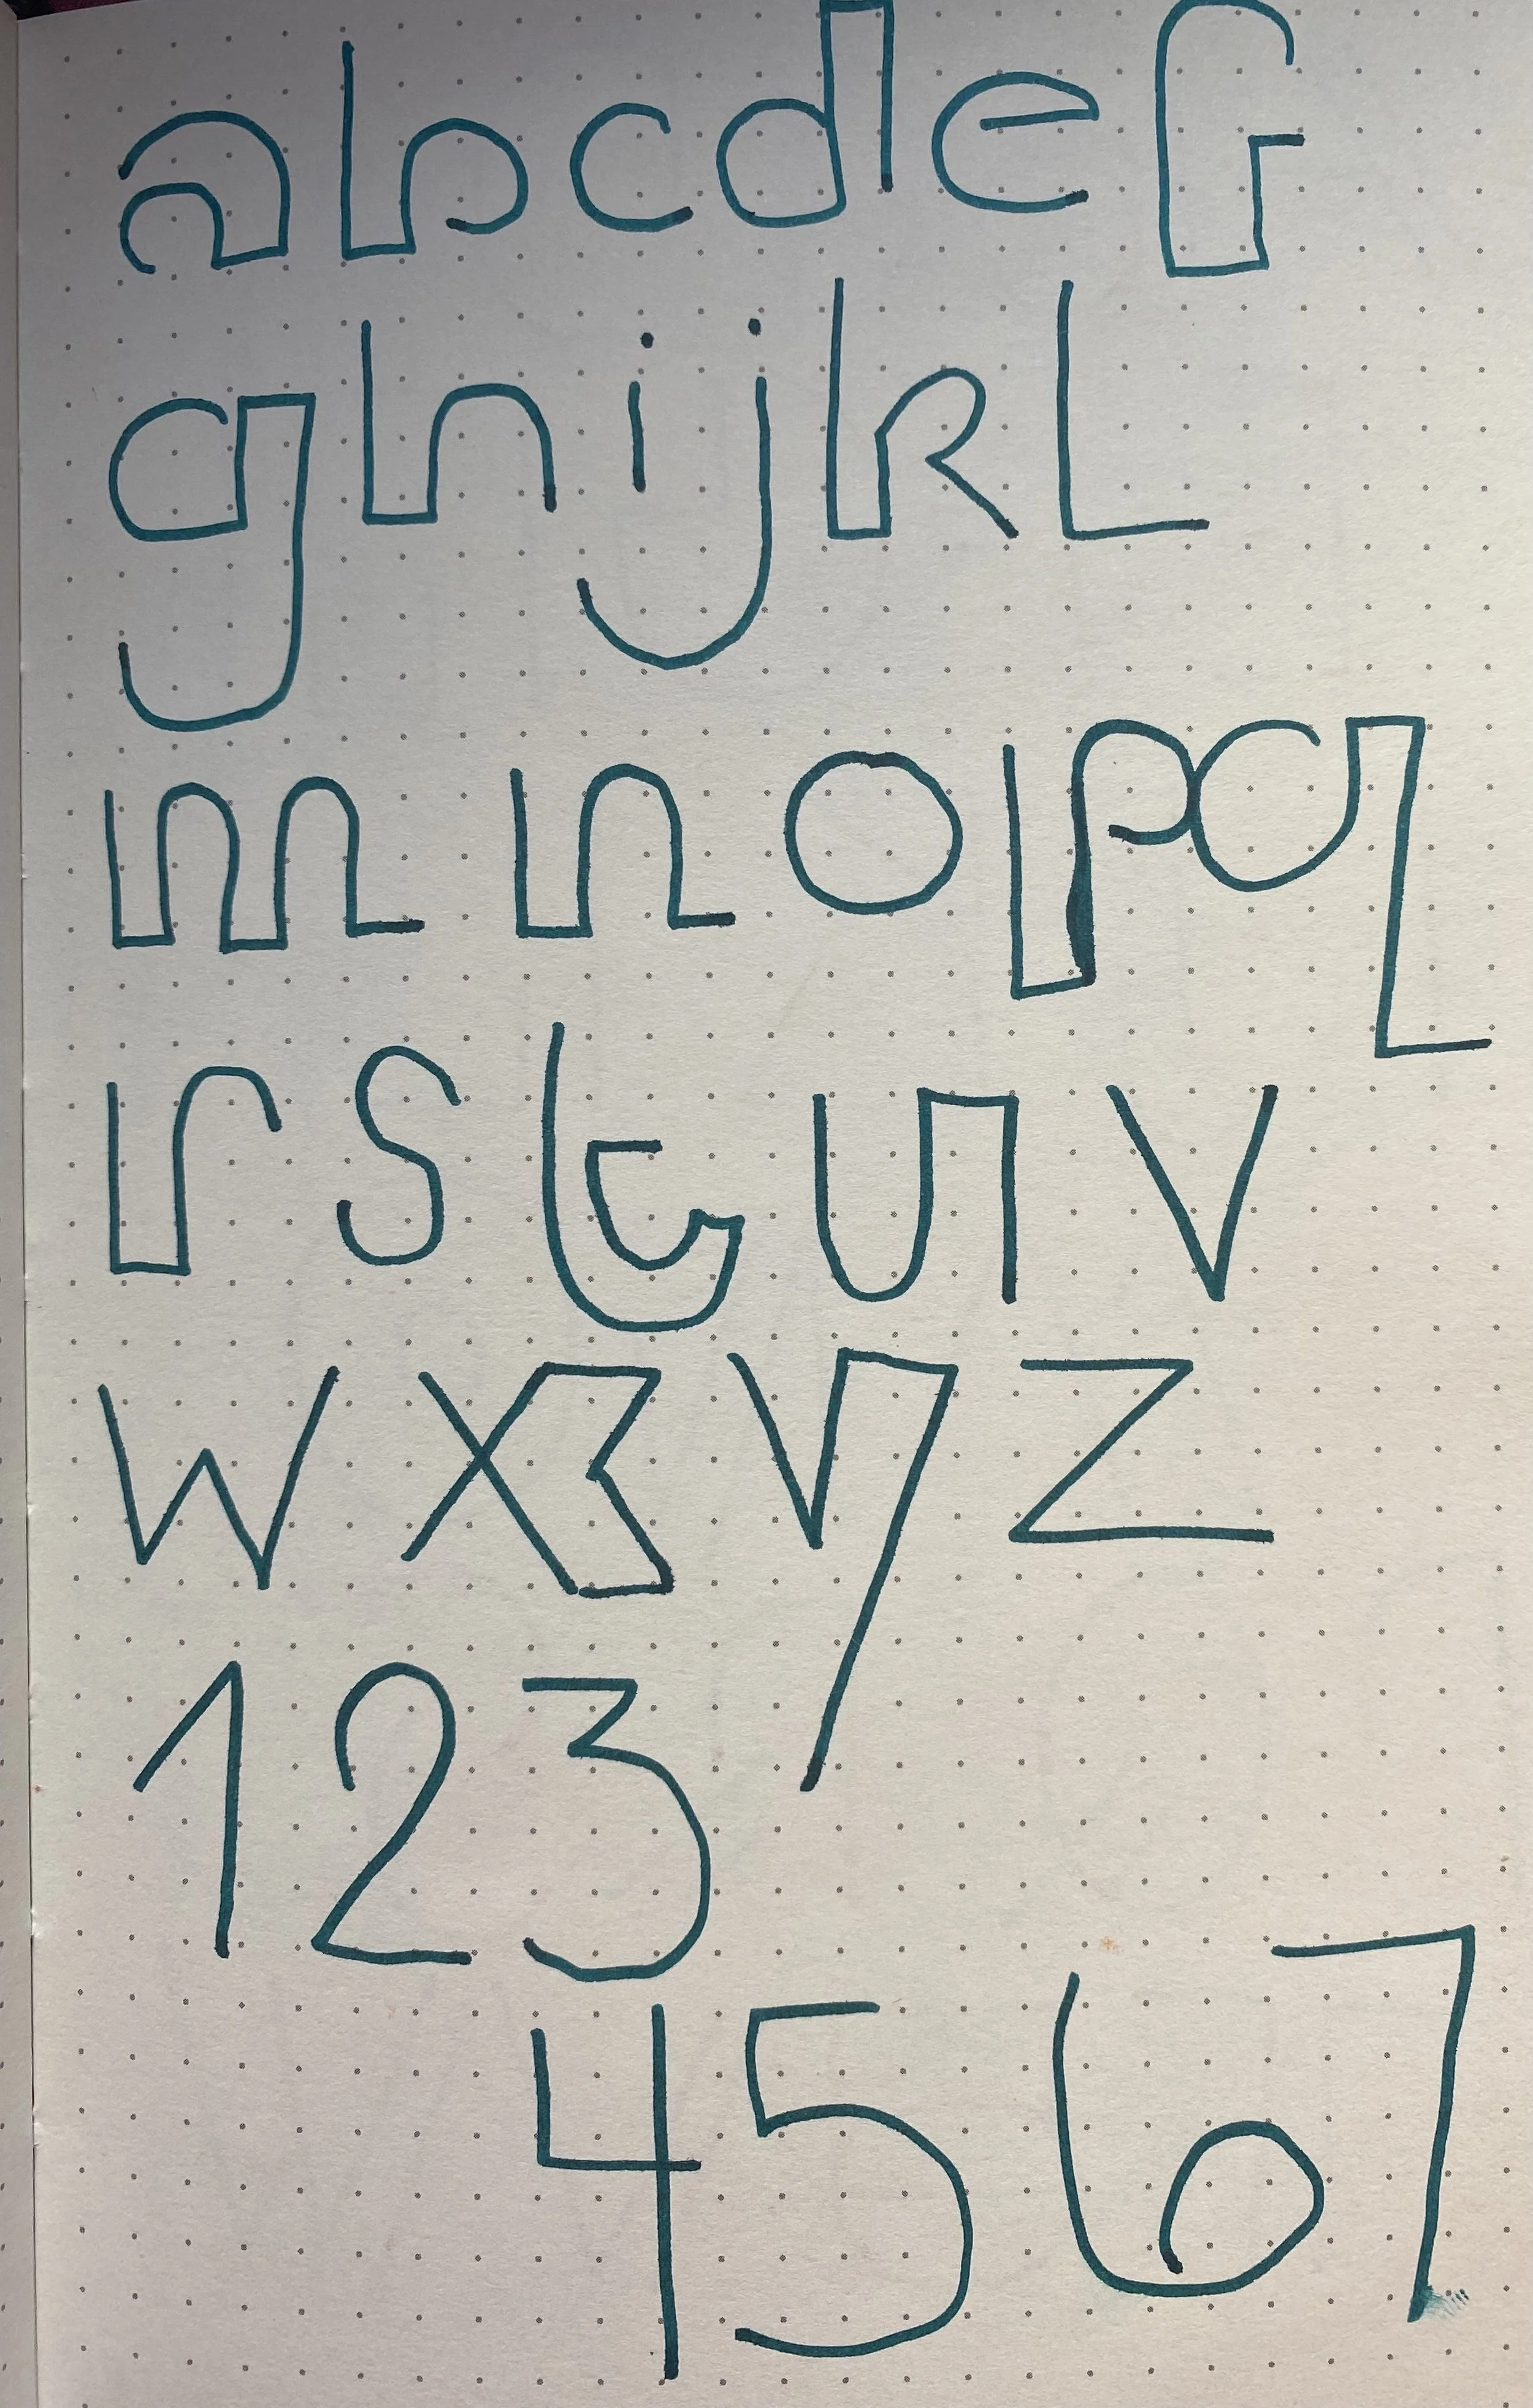 a b c d e f
g h i j k L
m n o p q
r s t u v
w x y z
1 2 3
4 5 6 7